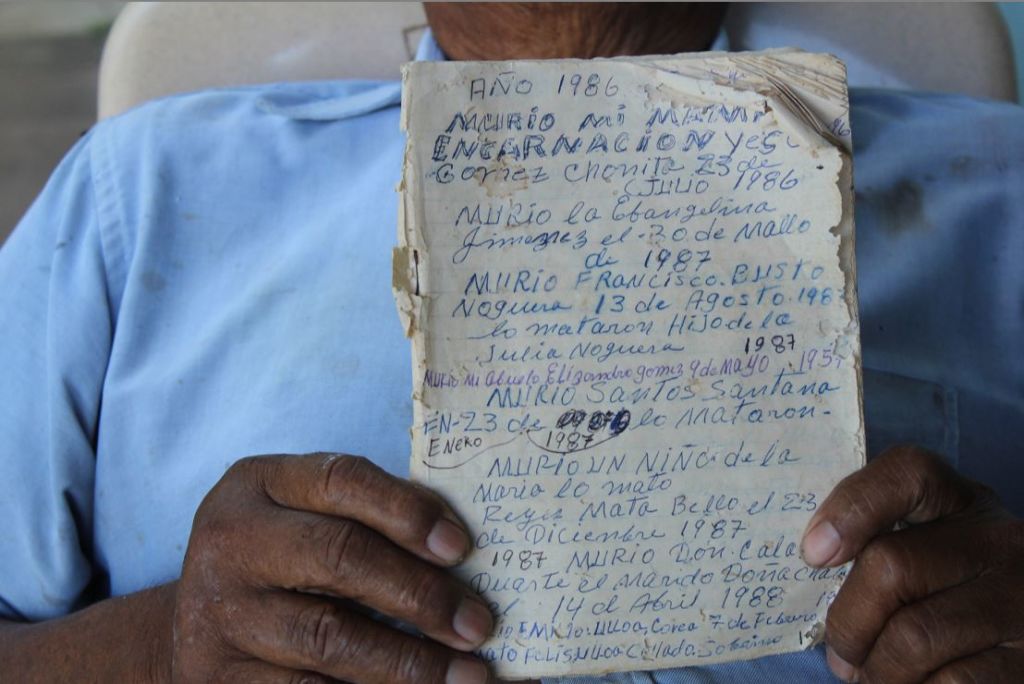 AÑO 1986
MURIO MI MAMA
ENCARNACION
Gomez Chonita 23 de
JULIO 1986
MURIO la Ebangelina
Jimenez el 30 de Mallo
de 1987
MURIO FRANCISCO. BUSTO
Noguera 13 de Agosto. 198
lo mataron Hijo de la
Julia Noguera 1987
MURIO MI Abuelo Elizandro gomez 9 de MAYO 195
MURIO Santos Santana
EN-23 de lo Mataron-
ENERO 1987
MURIO UN NIÑO de la
Maria lo mato
Reyes Mata Bello el 23
de Diciembre 1987
1987 MURIO DON Cala
Duarte el Marido Doña Cha
el 14 d Abril 1988
Correa 7 de Febrero
Sobrino